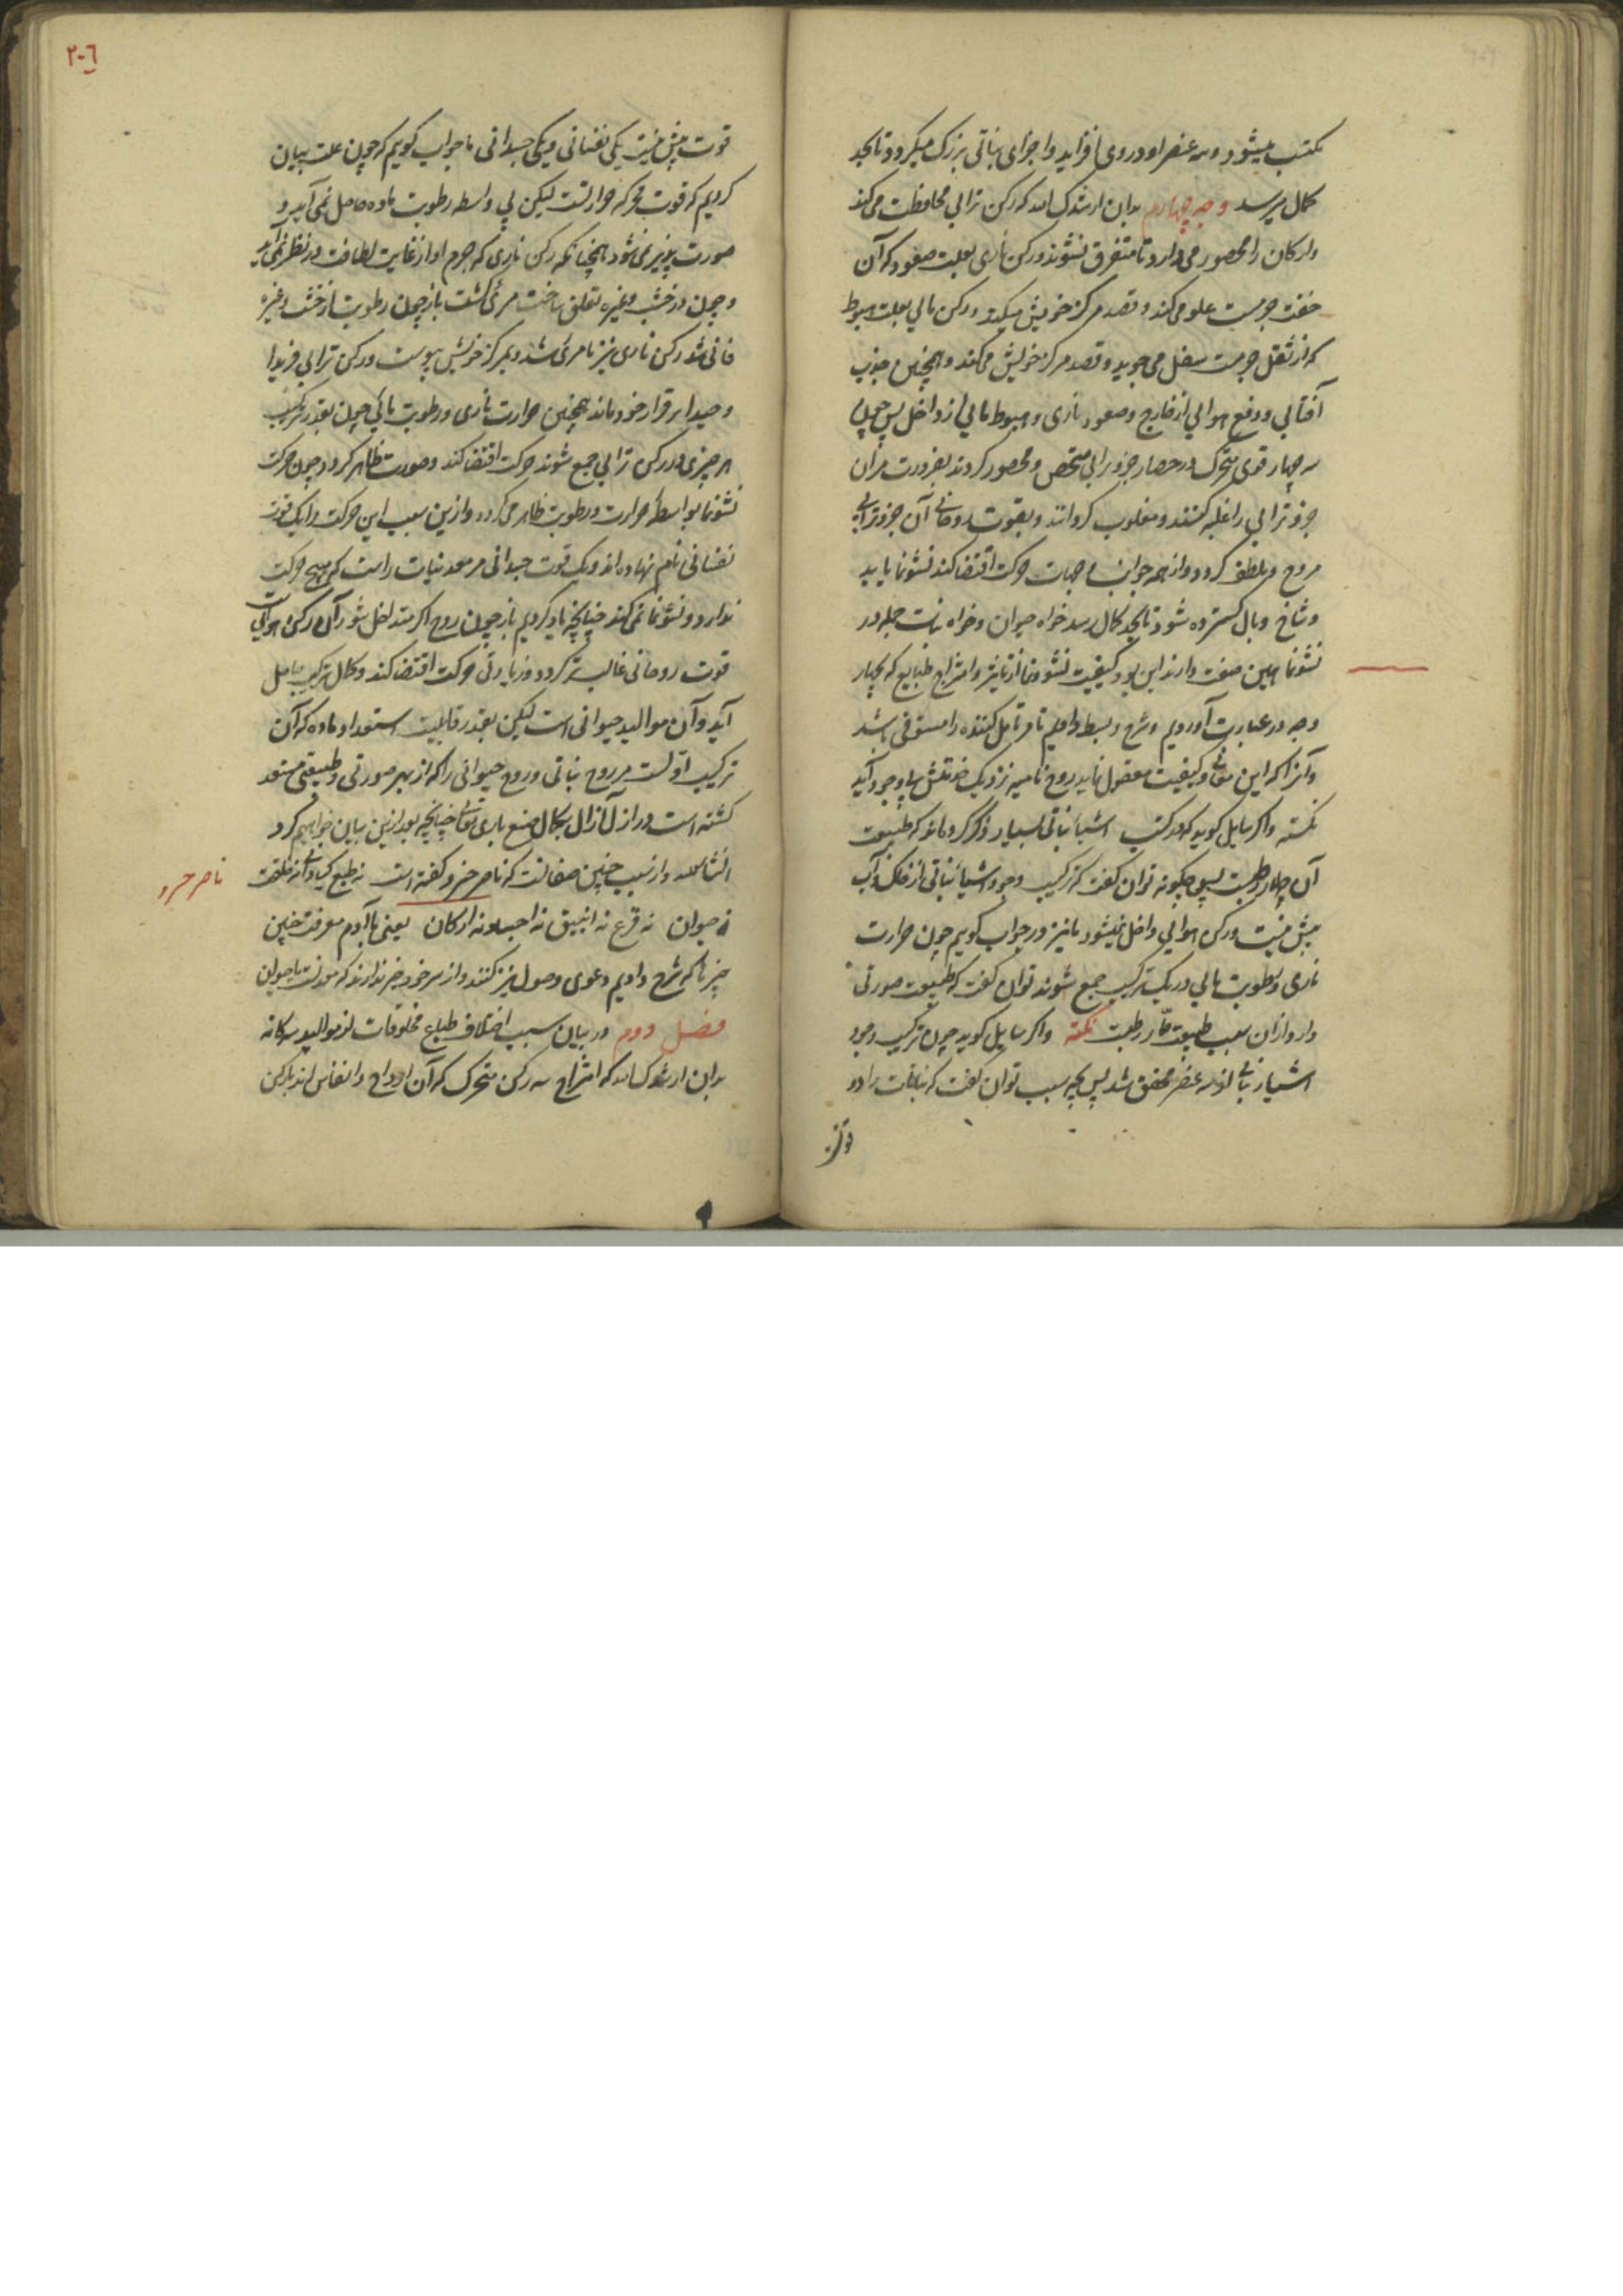 مکتسب میشود و سه عنصر او در وی افزاید و اجزای نباتی بزرک میکردد تا بحد
کمال میرسد وجه چهارم بدان ارشدک الله که رکن ترابی محافظت می کند
و ارکان را محصور می دارد تا متفرق نشوند و رکن ناری بعلت صعود که آن
خفت جرمست علو می کند و قصد مرکز خویش میکند و رکن مائی بعلت هبوط
که از ثقل جرمست سفل می جوید و قصد مرکز خویش می کند و همچنین جذب
آفتابی و دفع هوائی از خارج و صعود ناری و هبوط مائی از داخل پس چون
سه چهار قوی متحرک در حصار جزو ترابی متحصن و محصور کردند بضرورت مران
جزو ترابی را غلبه کنند و مغلوب کردانند و بقوت روحانی آن جزو ترابی
مروح و ملطف کردد و از همه جوانب و جهات حرکت اقتضا کند نشو نما یابد
و شاخ و بال کسترده شود تا بحد کمال رسد خواه حیوان و خواه نبات جمله در
نشو نما همین صفت دارند این بود کیفیت نشو و نما از تاثیر و امتزاج طبایع که بچهار
وجه در عبارت آوردیم و شرح و بسط دادیم تا مر تامل کننده را مستوفی باشد
و آنرا که این معانی و کیفیت معقول نماید روح نامیه نزدیک خردش بوجود آید
نکته و اکر سایل کوید که در کتب اشیاء نباتی بسیار ذکر کرده اند که طبیعت
آن حار رطبست پس چکونه توان کفت که ترکیب وجود اشیاء نباتی از خاک و آب
بیش نیست و رکن هوائی داخل نمیشود ما نیز در جواب کویم چون حرارت
ناری و رطوبت مائی در یک ترکیب جمع شوند توان کفت که طبیعت صورتی
دارد از آن سبب طبیعت حار رطبست نکته و اکر سایل کوید چون ترکیب وجود
اشیاء نباتی از سه عنصر محقق شد پس بچه سبب توان کفت که نباتات را دو
قوت
۲۰۶
قوت بیش نیست یکی نفسانی و یکی جسدانی ما جواب کویم که چون علت بیان
کردیم که قوت محرکه حرارتست لیکن بی واسطه رطوبت ماده حاصل نمی آید و
صورت پذیر نمی شود همچنانکه رکن ناری که جرم او از غایت لطافت در نظر نمی آید
و چون در خشب و غیره تعلق ساخت مرئی کشت باز چون رطوبت از خشب و غیره
فانی شد رکن ناری نیز نامرئی شد و بمرکز خویش پیوست و رکن ترابی فریدا
وحیدا بر قرار خود ماند همچنین حرارت ناری و رطوبت مائی چون بقدر ترکیب
هر چیزی در رکن ترابی جمع شوند حرکت اقتضا کند و صورت ظاهر کردد چون حرکت
نشو نما بواسطهٔ حرارت و رطوبت ظاهر می کردد و از این سبب این حرکت را یک قوت
نفسانی نام نهاده اند و یک قوت جسدانی مر معدنیات راست که هیچ حرکت
ندارد و نشو نما نمی کند چنانچه یاد کردیم باز چون روح اکبر متداخل شود آن رکن هوائیست
قوت روحانی غالب تر کردد و زیادتی حرکت اقتضا کند و کمال ترکیب حاصل
آید و آن موالید حیوانی است لیکن بقدر قابلیت استعداد ماده که آن
ترکیب اولست مر روح نباتی و روح حیوانی را که از بهر صورتی و طبیعتی مستعد
کشته است در ازل آزال بکمال صنع باری تعالی چنانچه بعد از این بیان خواهیم کرد
انشاءالله و از سبب چنین صفاتست که ناصر خسرو کفته است نه طبع کیا و نه خلقت
ناصر خسرو
نه حیوان نه قرع نه انبیق نه اجساد نه ارکان یعنی با آدم معرفت چنین
چیزها که شرح دادیم دعوی وصول نیز کنند و از سر خود خبر ندارند که معدنست یا حیوان
فصل دوم در بیان سبب اختلاف طباع مخلوقات از موالید سه کانه
بدان ارشدک الله که امتزاج سه رکن متحرک که آن ارواح و انفاس اند با رکن